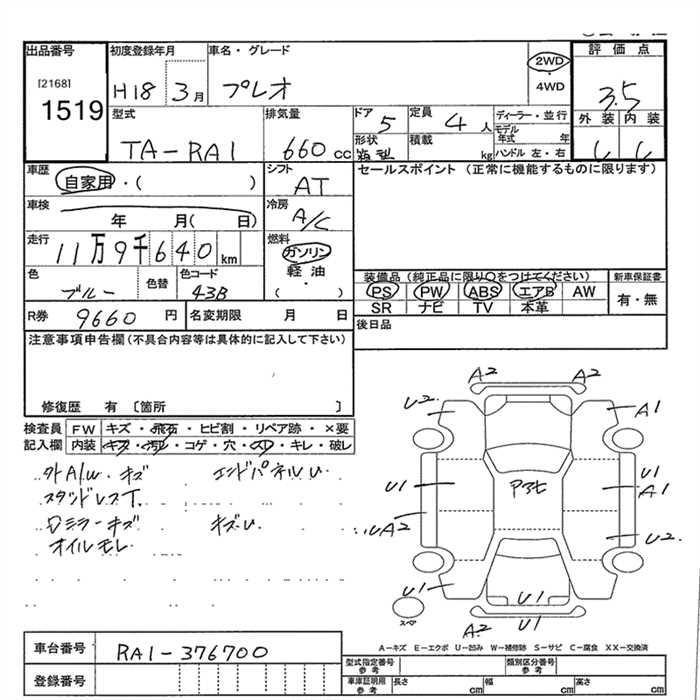 出品番号 初度登録年月 車名・グレード 評価点
[2168] 2WD
1519 H18 3月 プレオ ・ 4WD 3.5
型式 排気量 ドア 5 定員 4人 ディーラー・並行 外装 内装
TA-RA1 660cc 形状 積載 kg モデル年式 年
ハンドル 左・右
車歴 シフト セールスポイント (正常に機能するものに限ります)
自家用・( ) AT
車検 冷房
年 月( 日) A/C
走行 燃料
11万9千640km ガソリン
色 色替 色コード 軽油
ブルー 43B ( ・ )
装備品 (純正品に限り○をつけてください) 新車保証書
PS PW ABS エアB AW 有・無
SR ナビ TV 本革
R券 9660円 名変期限 月 日 後日品
注意事項申告欄 (不具合内容等は具体的に記入して下さい)
修復歴 有 〔箇所 〕
検査員 FW キズ・飛石・ヒビ割・リペア跡・×要
記入欄 内装 キズ・汚レ・コゲ・穴・スレ・キレ・破レ
外A/W キズ エンドパネルU
スタンドレスT.
ロミラーキズ キズU
オイルモレ
A2 A2
U2 A1
U1 U1
A1
UA2 U2
U1 U1
A2 U1
スペア
A-キズ E-エクボ U-凹み W-補修跡 S-サビ C-腐食 XX-交換済
車台番号 RA1-376700
登録番号
型式指定番号 参考 類別区分番号 参考
車庫証明用 参考 長さ cm 幅 cm 高さ cm